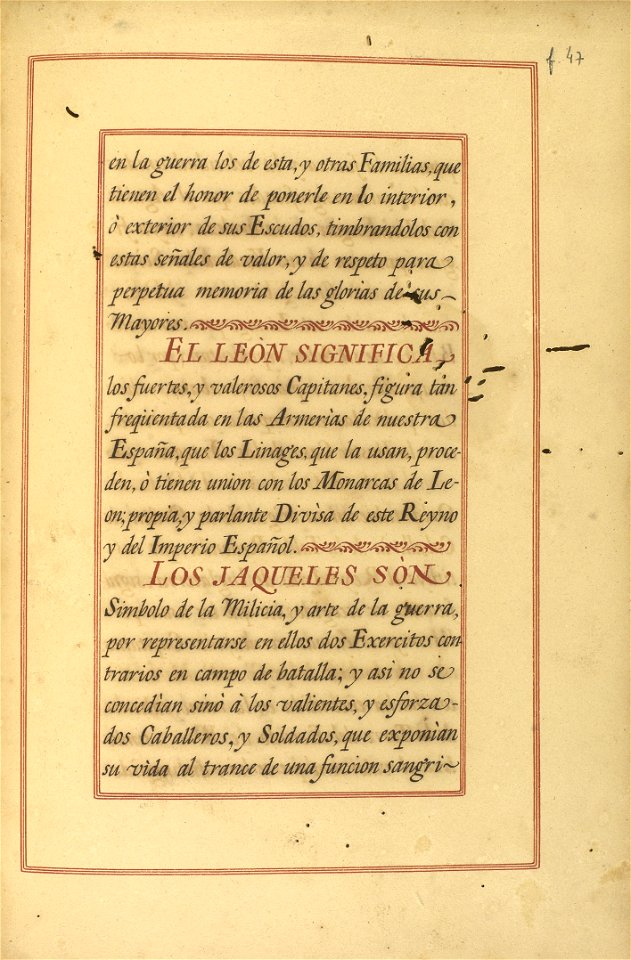 f. 47
en la guerra los de esta, y otras Familias, que
tienen el honor de ponerle en lo interior,
ò exterior de sus Escudos, timbrandolos con
estas señales de valor, y de respeto para
perpetua memoria de las glorias de sus
Mayores.
EL LEÒN SIGNIFICA
los fuertes, y valerosos Capitanes, figura tan
freqüentada en las Armerìas de nuestra
España, que los Linages, que la usan, proce-
den, ò tienen union con los Monarcas de Le-
on; propia, y parlante Divìsa de este Reyno
y del Imperio Español.
LOS JAQUELES SÒN
Simbolo de la Milicia, y arte de la guerra,
por representarse en ellos dos Exercitos con-
trarios en campo de batalla; y asi no se
concedìan sinò à los valientes, y esforza-
dos Caballeros, y Soldados, que exponìan
su vìda al trance de una funcion sangri~